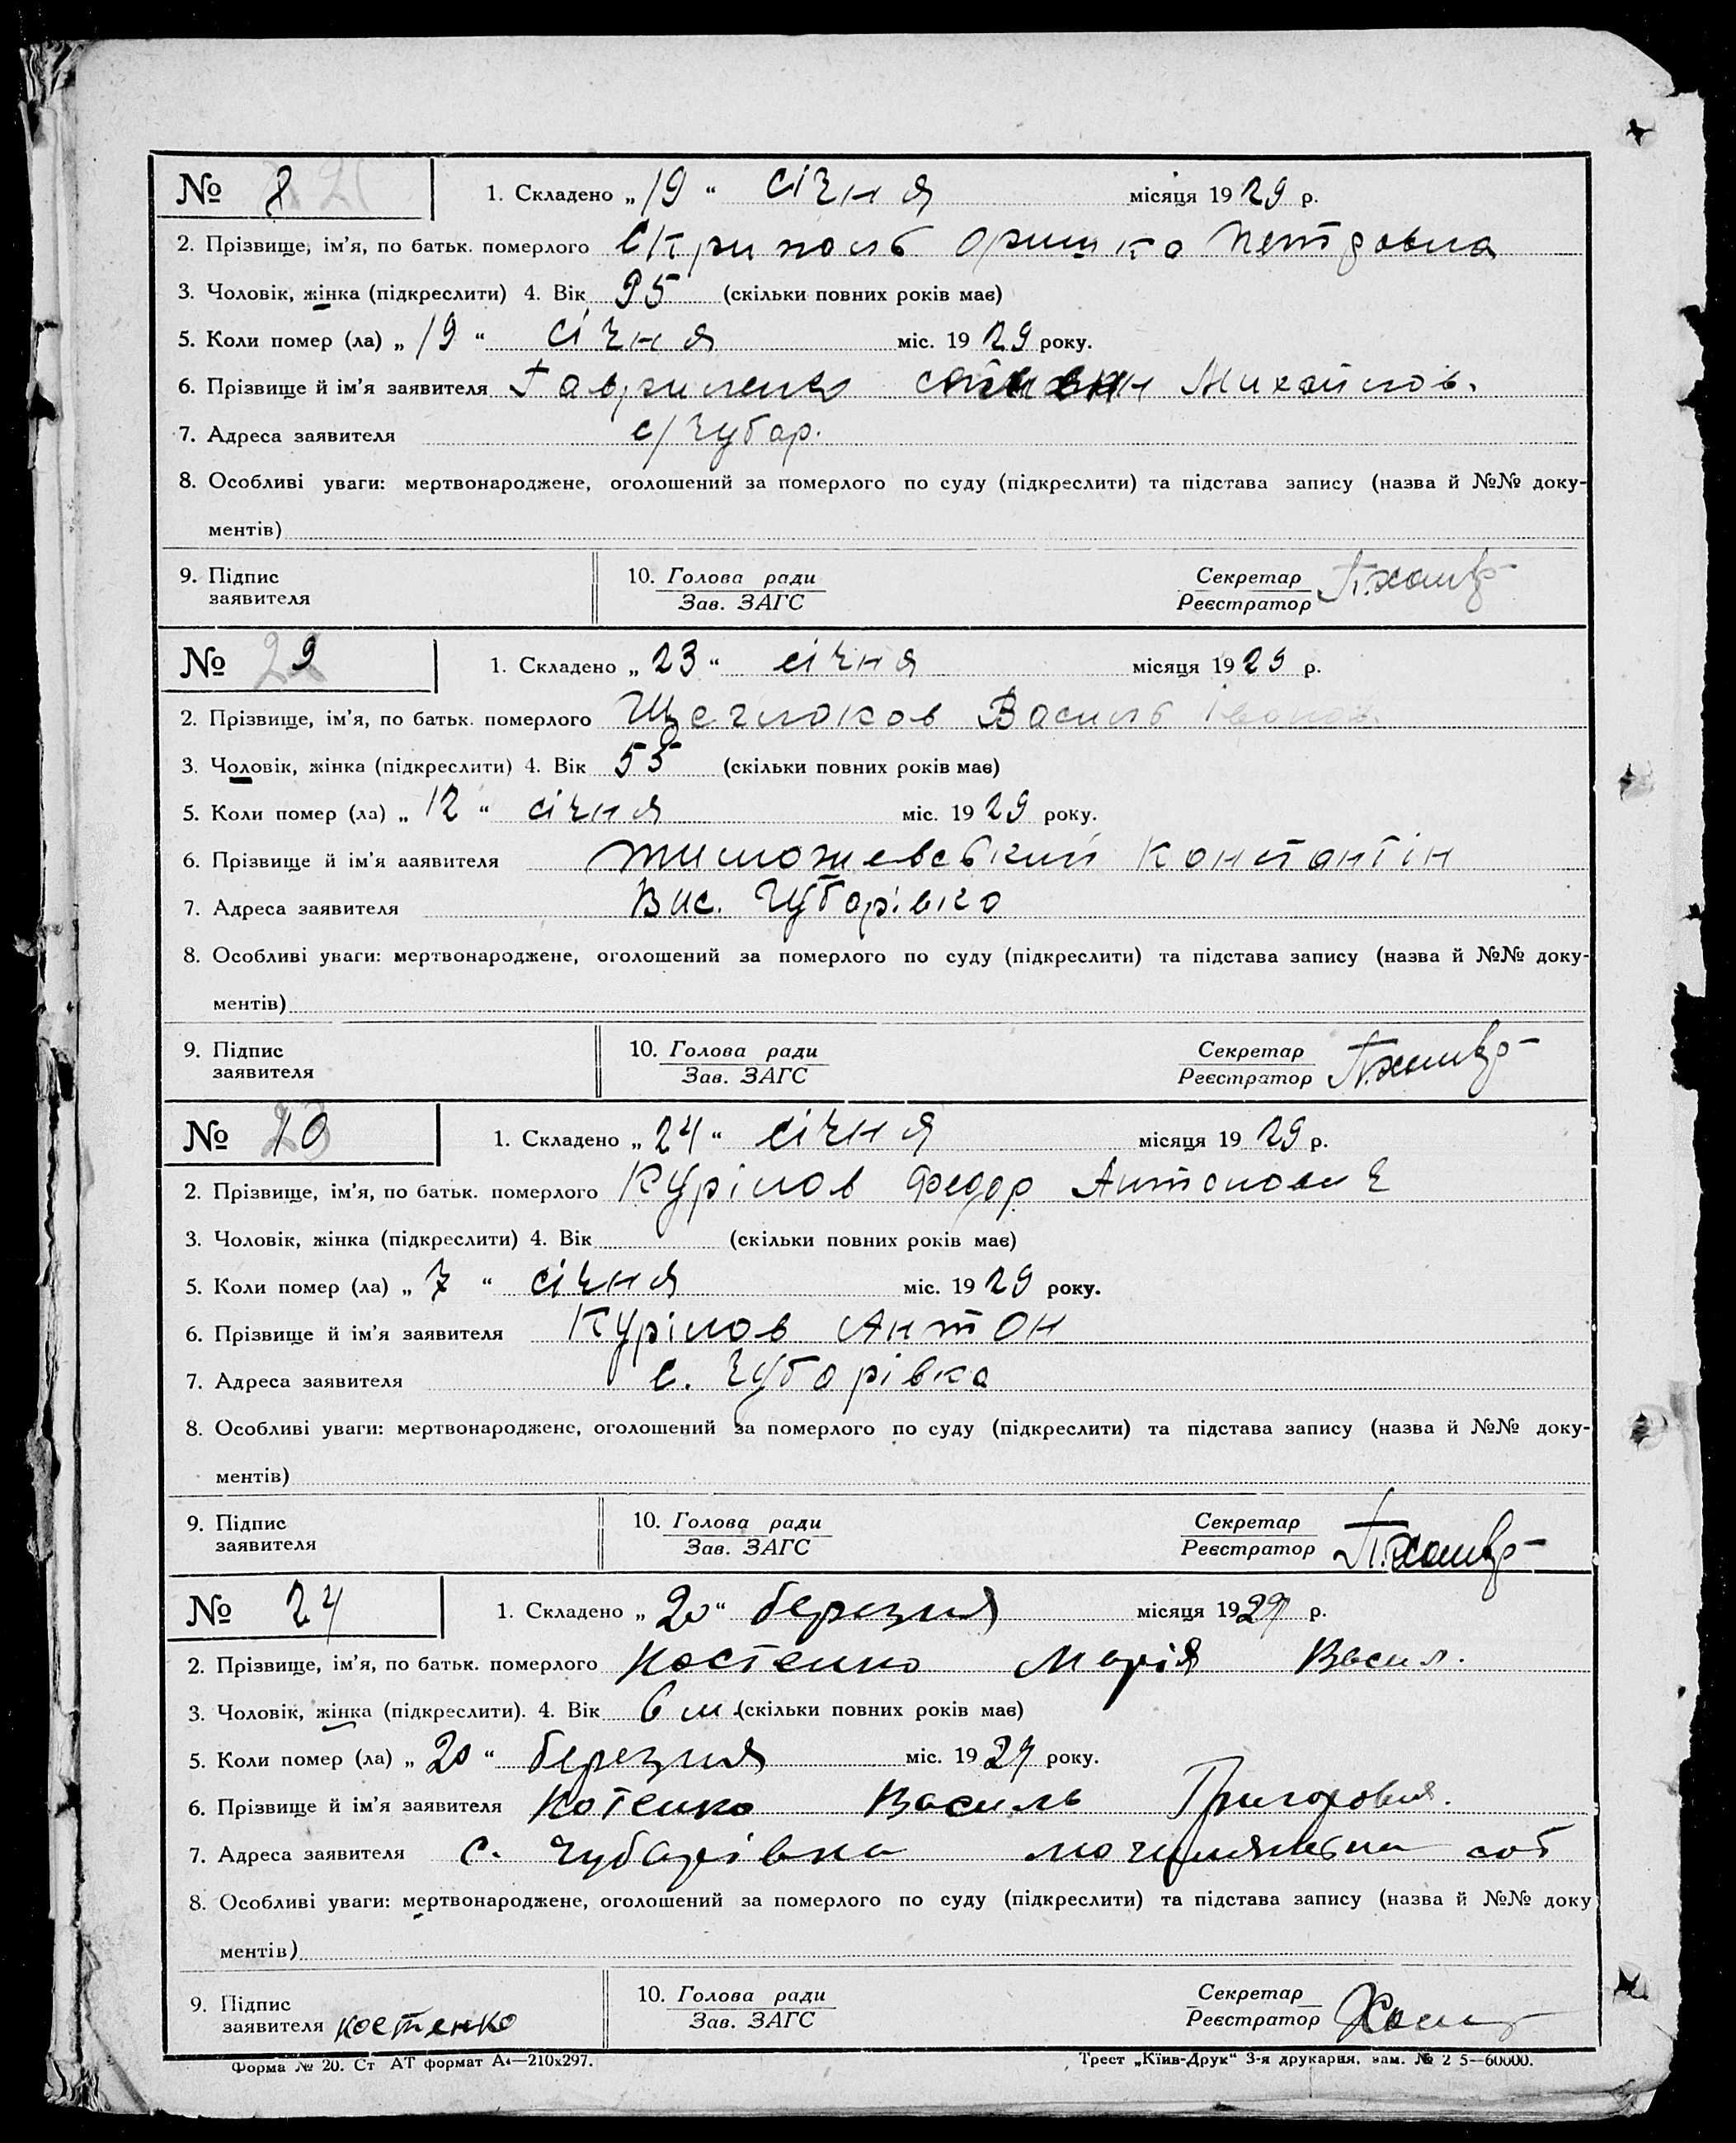 № 8 1. Складено „19“ січня місяця 1929 р.
2. Прізвище, ім’я, по батьк. померлого Скрипаль Оришка Петровна
3. Чоловік, жінка (підкреслити) 4. Вік 95 (скільки повних років має)
5. Коли помер (ла) „19“ січня міс. 1929 року.
6. Прізвище й ім’я заявителя Михайлов.
7. Адреса заявителя с/Чубар.
8. Особливі уваги: мертвонароджене, оголошений за померлого по суду (підкреслити) та підстава запису (назва й №№ доку-
ментів)
9. Підпис заявителя 10. Голова ради Зав. ЗАГС Секретар Реєстратор
№ 9 1. Складено „23“ січня місяця 1929 р.
2. Прізвище, ім’я, по батьк. померлого Василь Іванов.
3. Чоловік, жінка (підкреслити) 4. Вік 55 (скільки повних років має)
5. Коли помер (ла) „12“ січня міс. 1929 року.
6. Прізвище й ім’я ааявителя Константін
7. Адреса заявителя Вис. Чубарівка
8. Особливі уваги: мертвонароджене, оголошений за померлого по суду (підкреслити) та підстава запису (назва й №№ доку-
ментів)
9. Підпис заявителя 10. Голова ради Зав. ЗАГС Секретар Реєстратор
№ 10 1. Складено „24“ січня місяця 1929 р.
2. Прізвище, ім’я, по батьк. померлого Курілов Федор Антонович
3. Чоловік, жінка (підкреслити) 4. Вік (скільки повних років має)
5. Коли помер (ла) „7“ січня міс. 1929 року.
6. Прізвище й ім’я заявителя Курілов Антон
7. Адреса заявителя с. Чубарівка
8. Особливі уваги: мертвонароджене, оголошений за померлого по суду (підкреслити) та підстава запису (назва й №№ доку-
ментів)
9. Підпис заявителя 10. Голова ради Зав. ЗАГС Секретар Реєстратор
№ 24 1. Складено „20“ березня місяця 1929 р.
2. Прізвище, ім’я, по батьк. померлого Костенко Марія Васил.
3. Чоловік, жінка (підкреслити). 4. Вік 6 м. (скільки повних років має)
5. Коли помер (ла) „20“ березня міс. 1929 року.
6. Прізвище й ім’я заявителя Котенко Василь Григорович.
7. Адреса заявителя с. Чубарівка
8. Особливі уваги: мертвонароджене, оголошений за померлого по суду (підкреслити) та підстава запису (назва й №№ доку
ментів)
9. Підпис заявителя костенко 10. Голова ради Зав. ЗАГС Секретар Реєстратор
Форма № 20. Ст АТ формат А4—210х297. Трест „Київ-Друк“ 3-я друкарня, зам. № 2 5—60000.